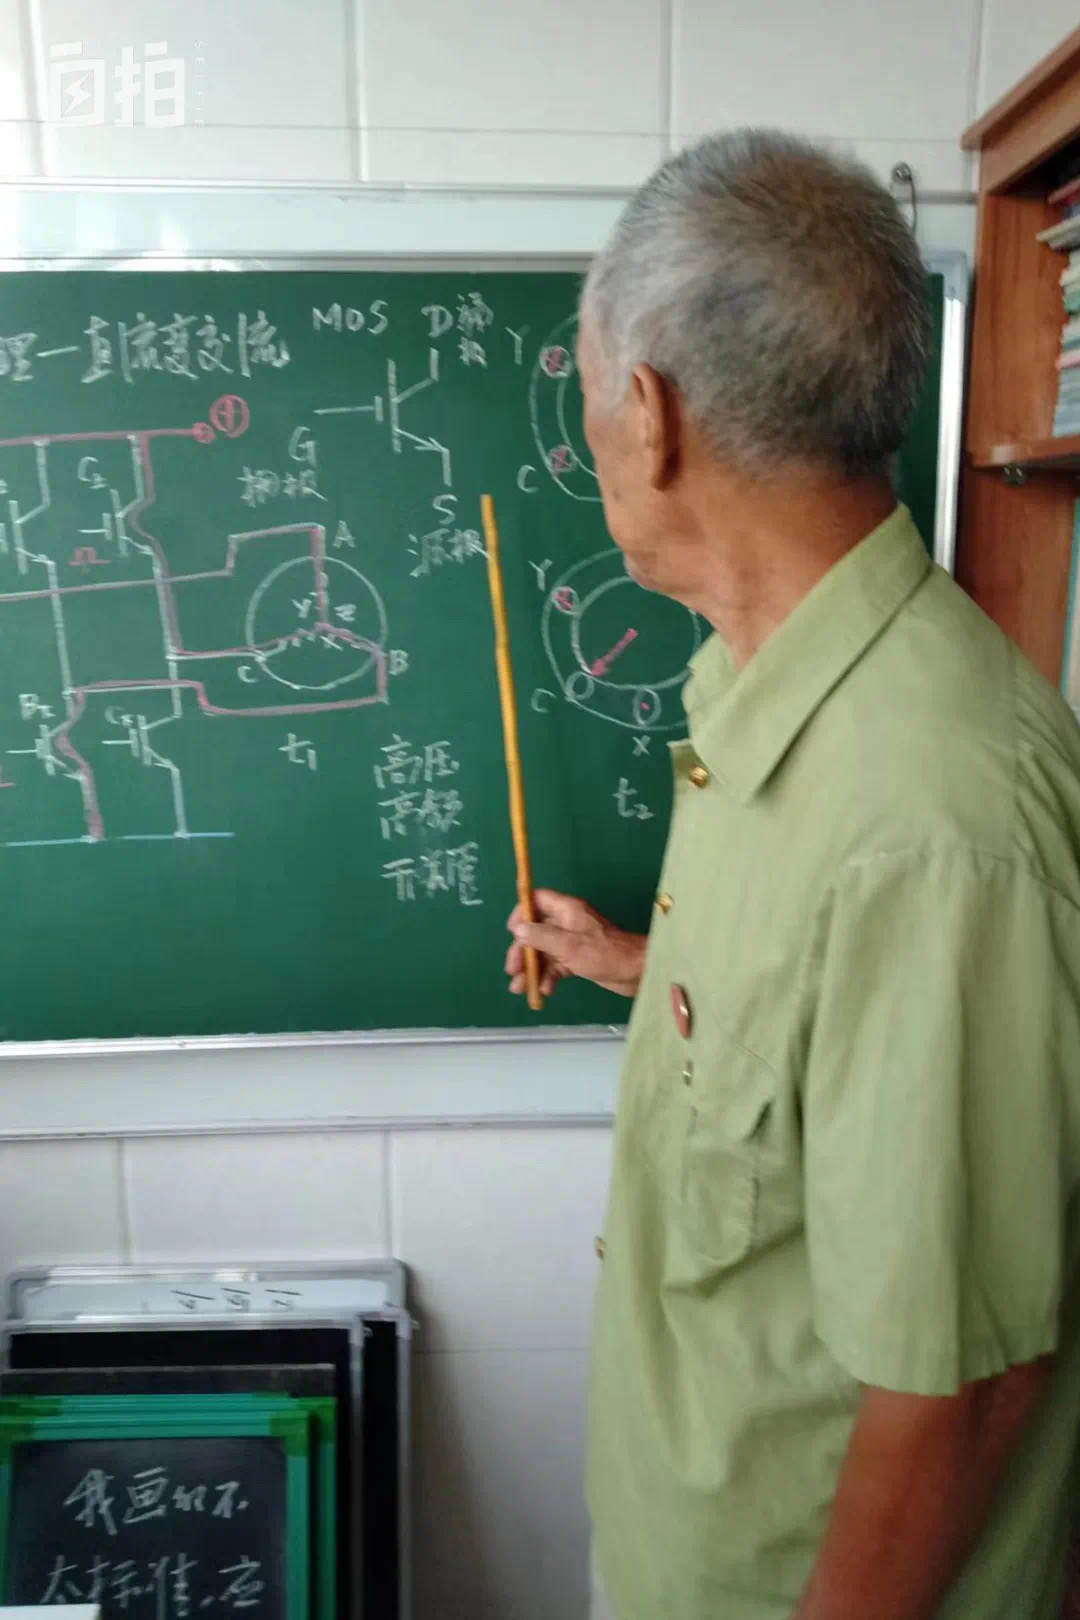 自拍
SELFIE
理—直流变交流
MOS
D 漏极
G
栅极
S
源极
C₂
A
Y
Z
X
C
B
B₂
C₂
t₁
高压
高频
Y
C
Y
C
X
t₂
我画的不
太标准,应